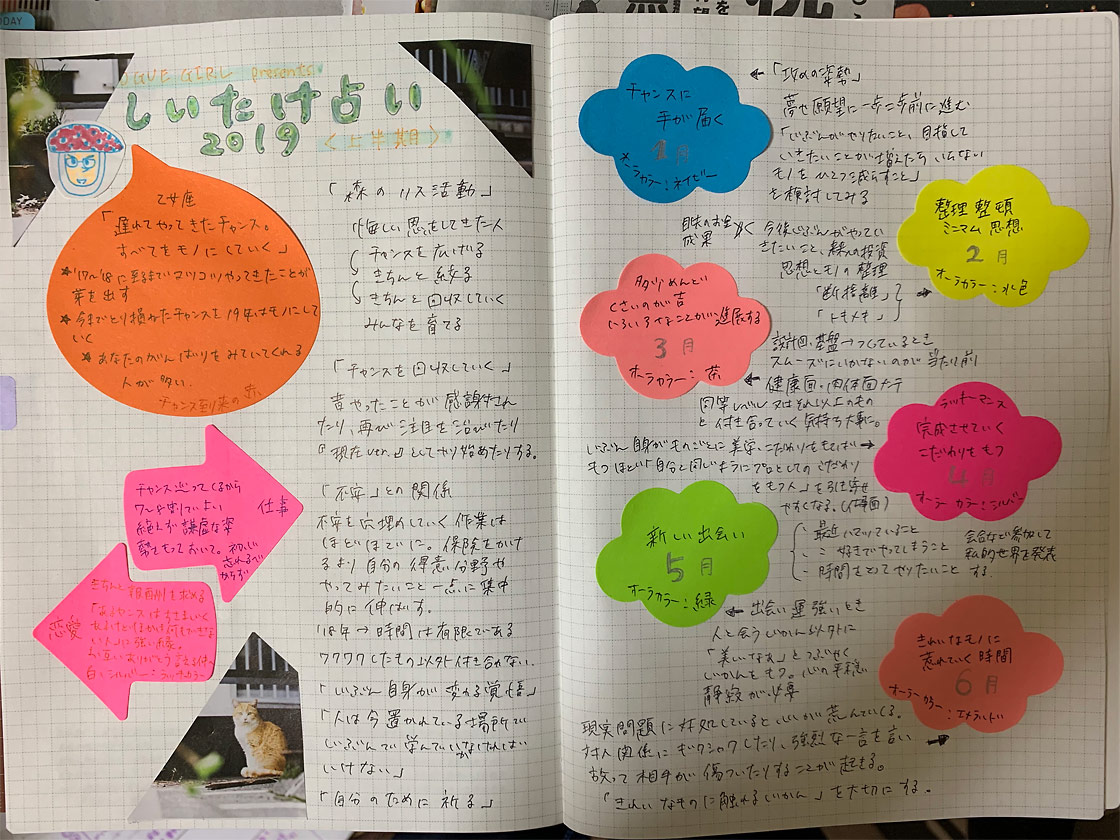 TODAY
OGUE GIRL presents
しいたけ占い
2019
〈上半期〉
乙女座
「遅れてやってきたチャンス。
すべてをモノにしていく」
★'17〜'18に至るまでコツコツやってきたことが
芽を出す
★今までとり損ねたチャンスを19年はモノにして
いく
★あなたのがんばりをみていてくれる
人が多い。
チャンス到来の赤
チャンス巡ってくるから
絶えず謙虚な姿
勢をもっておいて。
仕事
きちんと報酬を求める
恋愛
「森のリス活動」
悔しい思いをしてきた人
チャンスを広げる
きちんと絞る
きちんと回収していく
みんなを育てる
「チャンスを回収していく」
昔やったことが感謝され
たり、再び注目を浴びたり
『現在ver.』としてやり始めたりする。
「不安」との関係
不安を穴埋めしていく作業は
ほどほどに。保険をかけ
るより自分の得意分野や
やってみたいこと一点に集中
的に伸ばす。
'18年→時間は有限である
ワクワクしたもの以外付き合わない.
「じぶん自身が変わる覚悟」
「人は今置かれている場所で
じぶんで学んでいかなければ
いけない」
「自分のために祈る」
チャンスに
手が届く
1月
オーラカラー:ネイビー
←「攻めの姿勢」
夢や願望に一歩二歩前に進む
「じぶんがやりたいこと、目指して
いきたいことが増えたらいらない
モノをひとつ減らすこと」
を検討してみる
整理整頓
ミニマム思想
2月
オーラカラー:水色
成果
今後じぶんがやってい
きたいこと、
思想とモノの整理
「断捨離」
「トキメキ」
多少めんどい
くさいのが吉
いろいろなことが進展する
3月
オーラカラー:茶
設計図・基盤→つくっているとき
スムーズにいかないのが当たり前
←健康面・肉体面
同等レベル又はそれ以上のもの
と付き合っていく気持ち大事に。
完成させていく
こだわりをもつ
4月
オーラカラー:シルバー
じぶん自身がものごとに美学、こだわりをもてば→
もつほど「自分と同じようにプロとしてのこだわり
をもつ人」を引き寄せ
やすくなる。(仕事面)
新しい出会い
5月
オーラカラー:緑
最近ハマっていること
好きでやってしまうこと
時間をとってやりたいこと
会合など参加して
私的世界を発表
する.
←出会い運強いとき
人と会うじかん以外に
「美しいなぁ」とつぶやく
じかんをもつ。心の平穏
静寂が必要
きれいなモノに
荒れていく時間
6月
オーラカラー:エメラルド
現実問題に対処していると心が荒んでくる。
対人関係にギクシャクしたり、強烈な一言を言い
放って相手が傷ついたりすることが起きる。
「きれいなものに触れるじかん」を大切にする。